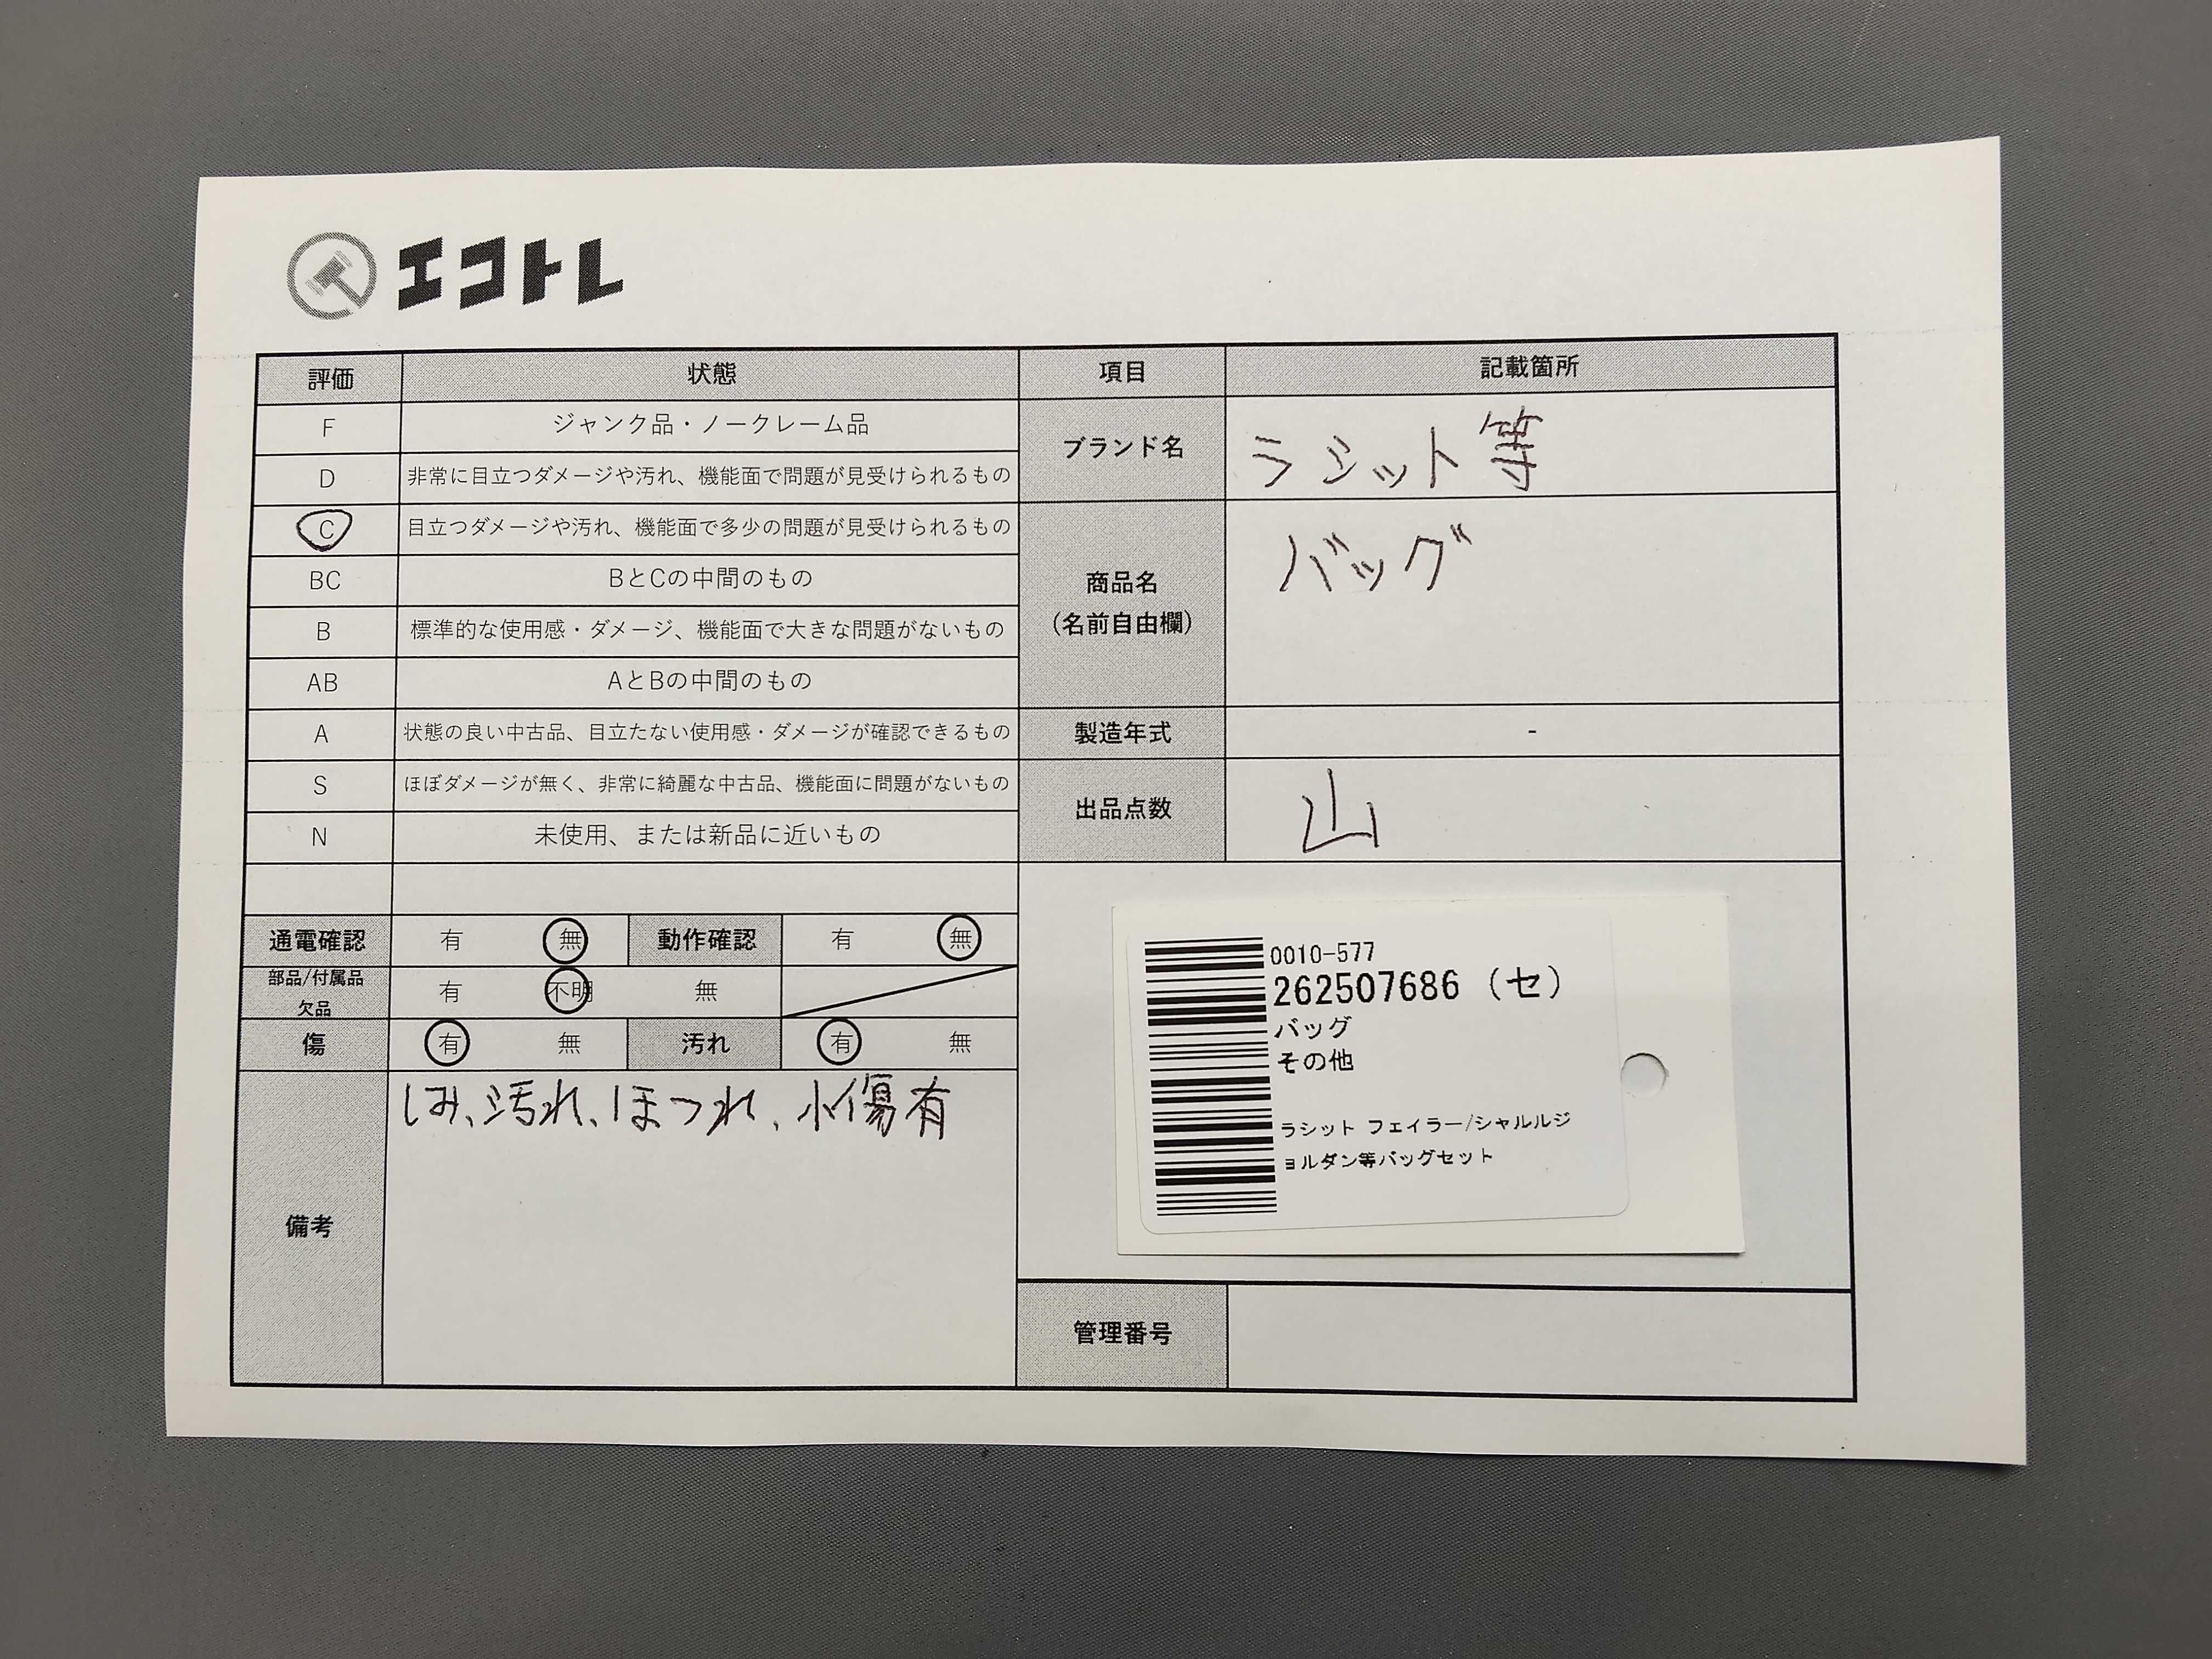 エコトレ
評価 状態 項目 記載箇所
F ジャンク品・ノークレーム品
D 非常に目立つダメージや汚れ、機能面で問題が見受けられるもの
C 目立つダメージや汚れ、機能面で多少の問題が見受けられるもの
BC BとCの中間のもの
B 標準的な使用感・ダメージ、機能面で大きな問題がないもの
AB AとBの中間のもの
A 状態の良い中古品、目立たない使用感・ダメージが確認できるもの
S ほぼダメージが無く、非常に綺麗な中古品、機能面に問題がないもの
N 未使用、または新品に近いもの
ブランド名 ラシット等
商品名 バッグ
(名前自由欄)
製造年式 -
出品点数 山
通電確認 有 無 動作確認 有 無
部品/付属品
欠品 有 不明 無
傷 有 無 汚れ 有 無
備考 しみ、汚れ、ほつれ、小傷有
0010-577
262507686 (セ)
バッグ
その他
ラシット フェイラー/シャルルジ
ョルダン等バッグセット
管理番号